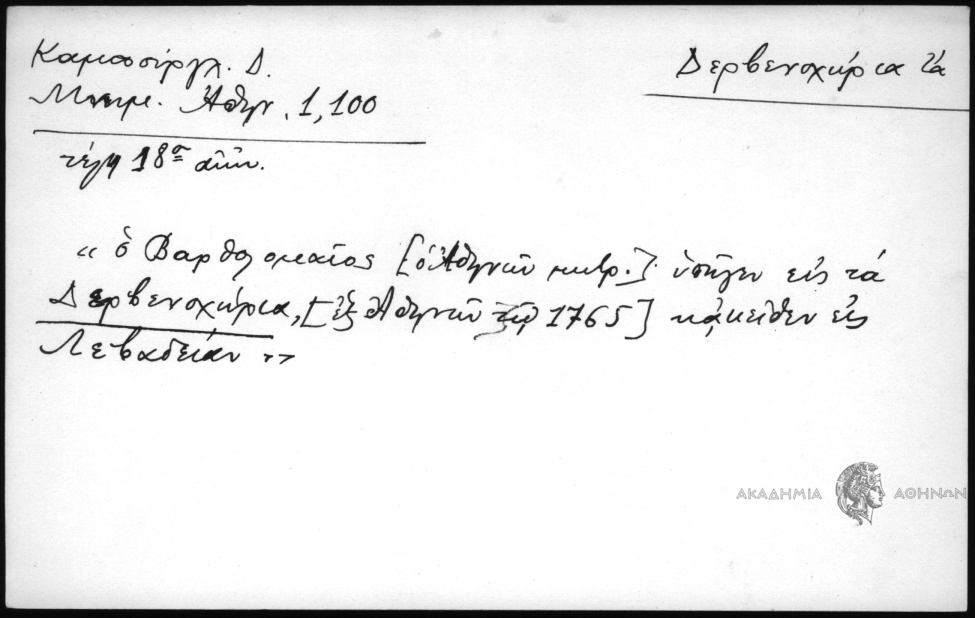 Καμπούρογλ. Δ.
Δερβενοχώρια τά
Μνημ. Ἀθην. 1, 100
τέλη 18ου αἰῶν.
« ὁ Βαρθολομαῖος [ὁ Ἀθηνῶν μητρ.] ὑπῆγεν εἰς τά
Δερβενοχώρια, [ἐξ Ἀθηνῶν τῷ 1765] κἀκεῖθεν εἰς
Λεβαδείαν »
ΑΚΑΔΗΜΙΑ ΑΘΗΝΩΝ